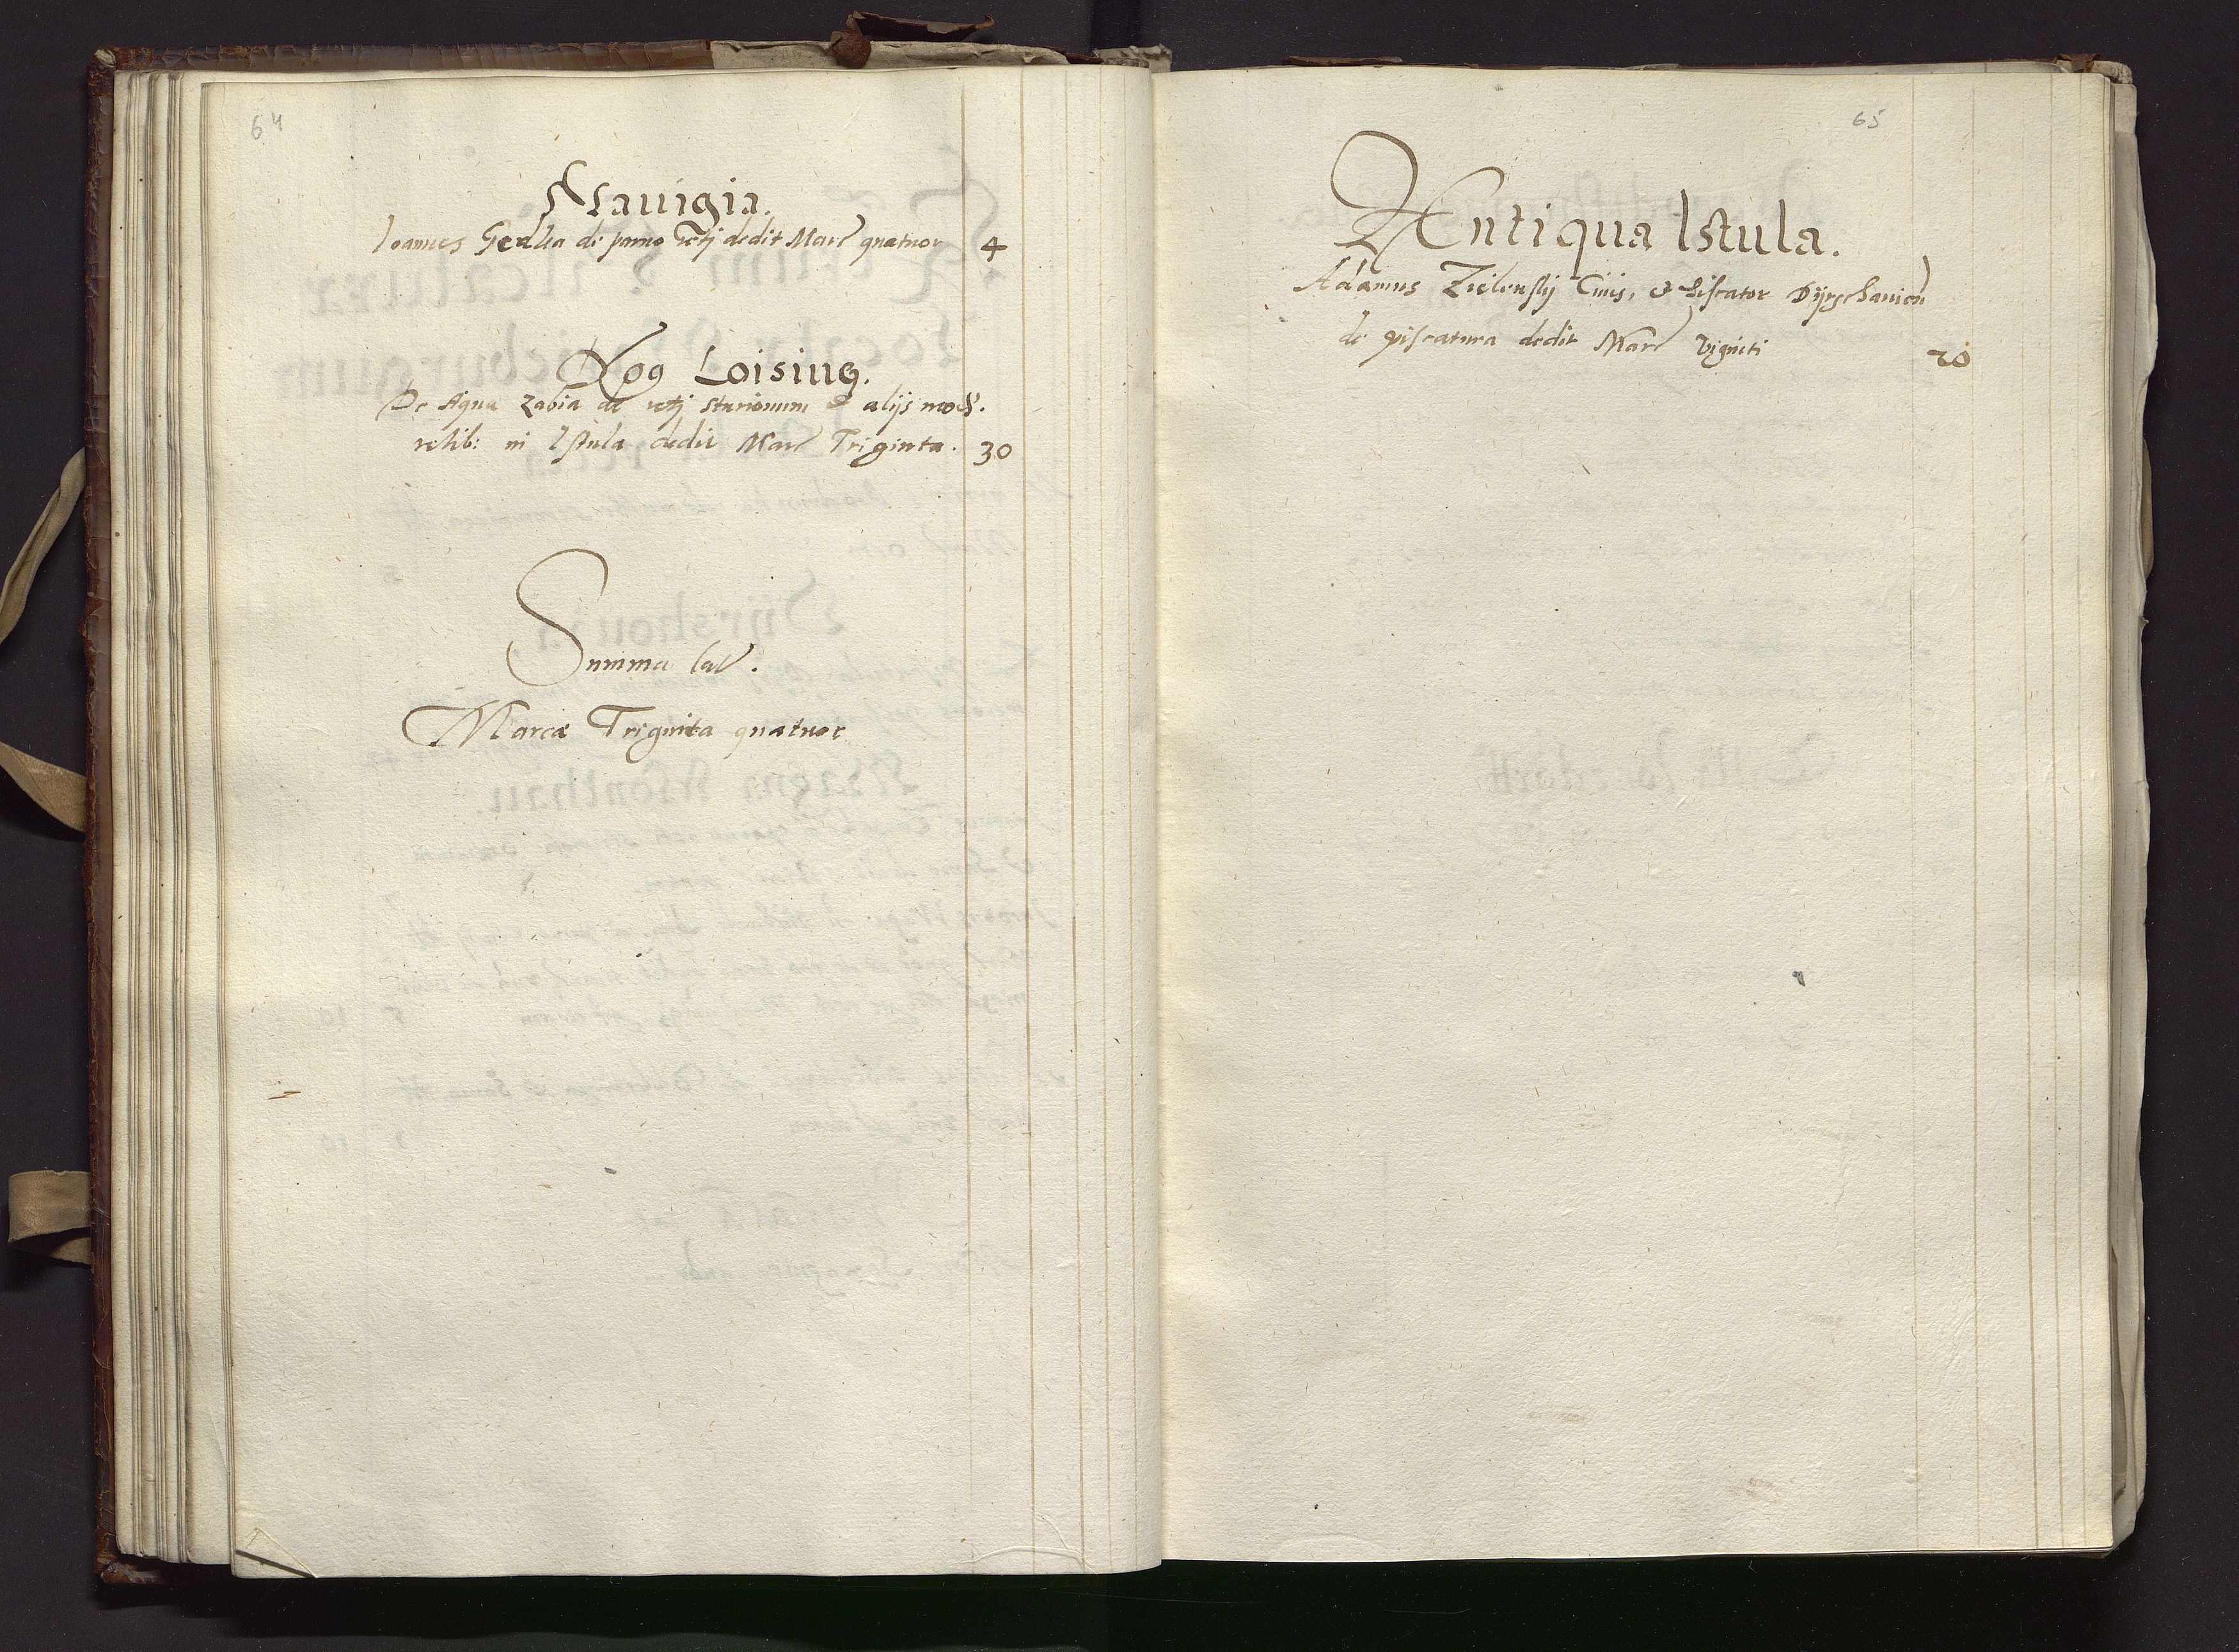 64
Nauigia.
Ioannes Gedka de paruo Retj dedit Marc quatuor 4
Xpg Loising.
De Aqua Zabia de retj sturionum & alijs mod.
retib: in Istula dedit Marc Triginta. 30
Summa lat.
Marcæ Triginta quatuor
65
Antiqua Istula.
Adamus Zielenskij Ciuis, & Piscator Dijrschauien
de piscatura dedit Marc Viginti 20